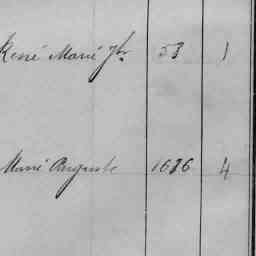 René Marie Jh 53 1
Marie Auguste 1636 4